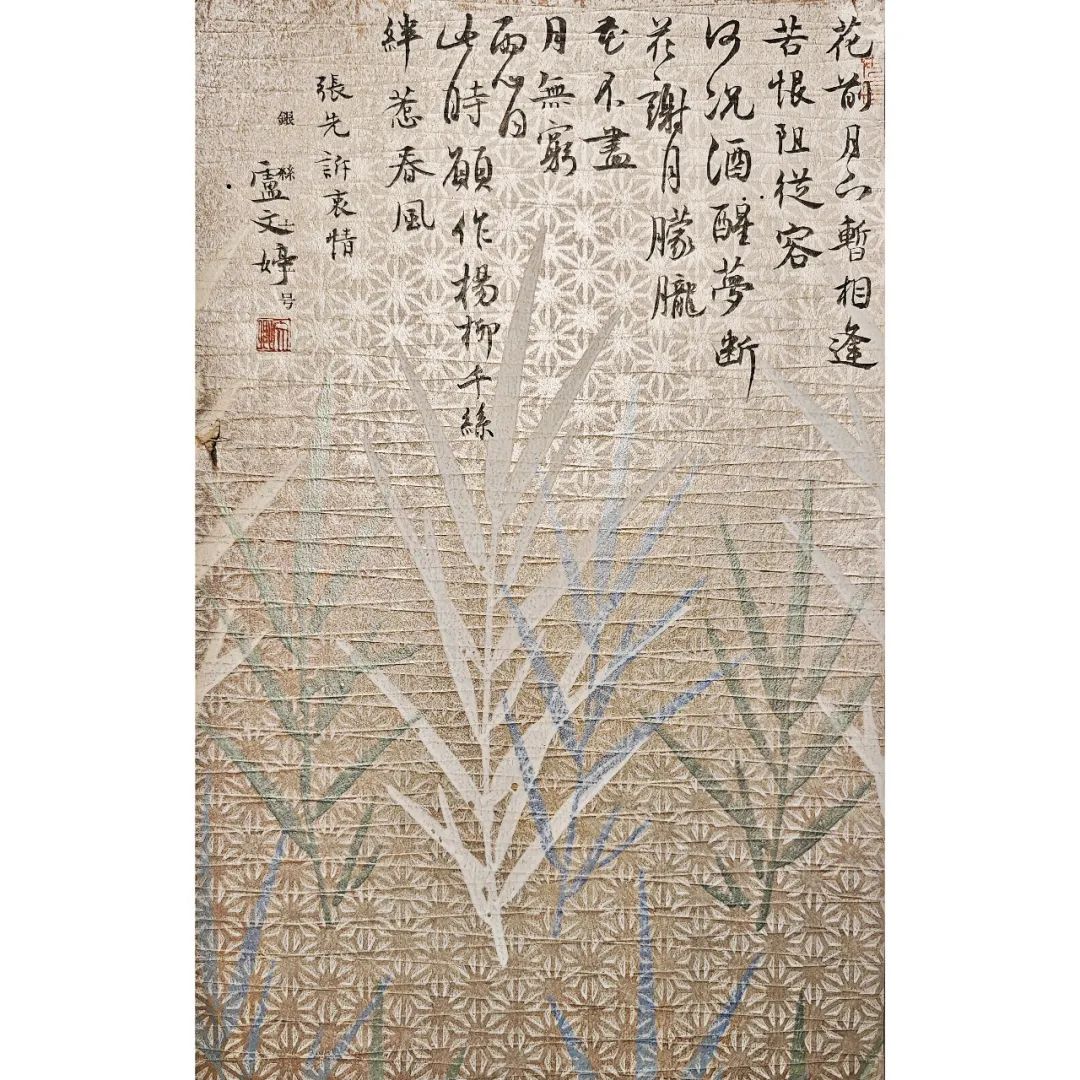 花前月下暫相逢
苦恨阻從容
何況酒醒夢斷
花謝月朦朧
花不盡
月無窮
兩心同
此時願作楊柳千絲
絆惹春風
張先訴衷情
銀絲 号
盧文婷